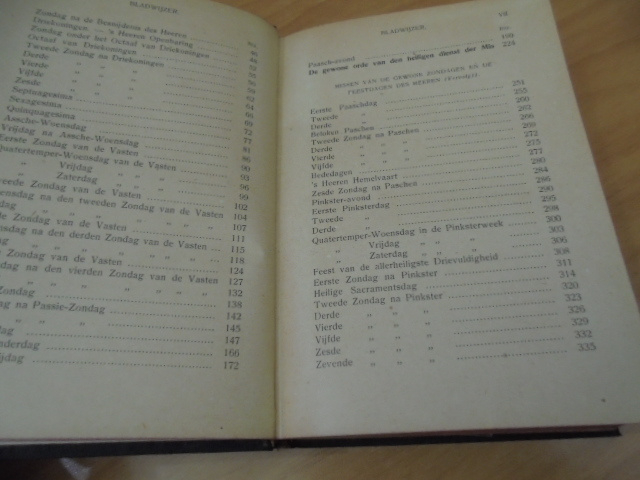 BLADWIJZER.
Blz.
Zondag na de Besnijdenis des Heeren
Driekoningen. — 's Heeren Openbaring
Zondag onder het Octaaf van Driekoningen
Octaaf van Driekoningen
Tweede Zondag na Driekoningen
Derde
Vierde
Vijfde
Zesde
Septuagesima
Sexagesima 64
Quinquagesima 66
Assche-Woensdag 72
Vrijdag na Assche-Woensdag 77
Eerste Zondag van de Vasten 81
Quatertemper-Woensdag van de Vasten 86
„ Vrijdag „ „ 90
„ Zaterdag „ „ 93
weede Zondag van de Vasten 96
oensdag na den tweeden Zondag van de Vasten 102
de Zondag van de Vasten 104
nsdag na den derden Zondag van de Vasten 107
„ „ „ „ „ 111
e Zondag van de Vasten 115
ag na den vierden Zondag van de Vasten 118
„ „ „ „ 124
Zondag 127
ag na Passie-Zondag 132
„ „ „ 138
ag 142
nderdag 145
ijdag 147
166
172
BLADWIJZER. VII
Blz.
Paasch-avond 180
De gewone orde van den heiligen dienst der Mis 225
MISSEN VAN DE GEWONE ZONDAGEN EN DE
FEESTDAGEN DES HEEREN (Vervolg).
Eerste Paaschdag 251
Tweede „ 255
Derde „ 260
Beloken Paschen 266
Tweede Zondag na Paschen 270
Derde „ „ „ 272
Vierde „ „ „ 275
Vijfde „ „ „ 277
Bededagen 280
's Heeren Hemelvaart 284
Zesde Zondag na Paschen 286
Pinkster-avond 290
Eerste Pinksterdag 295
Tweede „ 298
Derde „ 300
Quatertemper-Woensdag in de Pinksterweek 303
„ Vrijdag „ „ 306
„ Zaterdag „ „ 308
Feest van de allerheiligste Drievuldigheid 311
Eerste Zondag na Pinkster 314
Heilige Sacramentsdag 320
Tweede Zondag na Pinkster 323
Derde „ „ „ 326
Vierde „ „ „ 329
Vijfde „ „ „ 332
Zesde „ „ „ 335
Zevende „ „ „